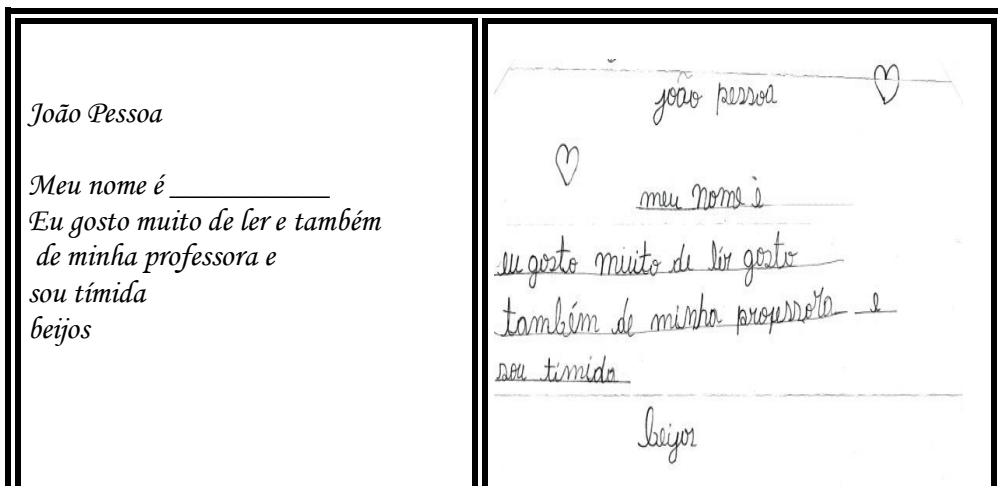 João Pessoa
Meu nome é ___________
Eu gosto muito de ler e também
de minha professora e
sou tímida
beijos
joão pessoa
meu nome è
eu gosto muito de lêr gosto
também de minha professora e
sou timida
beijos